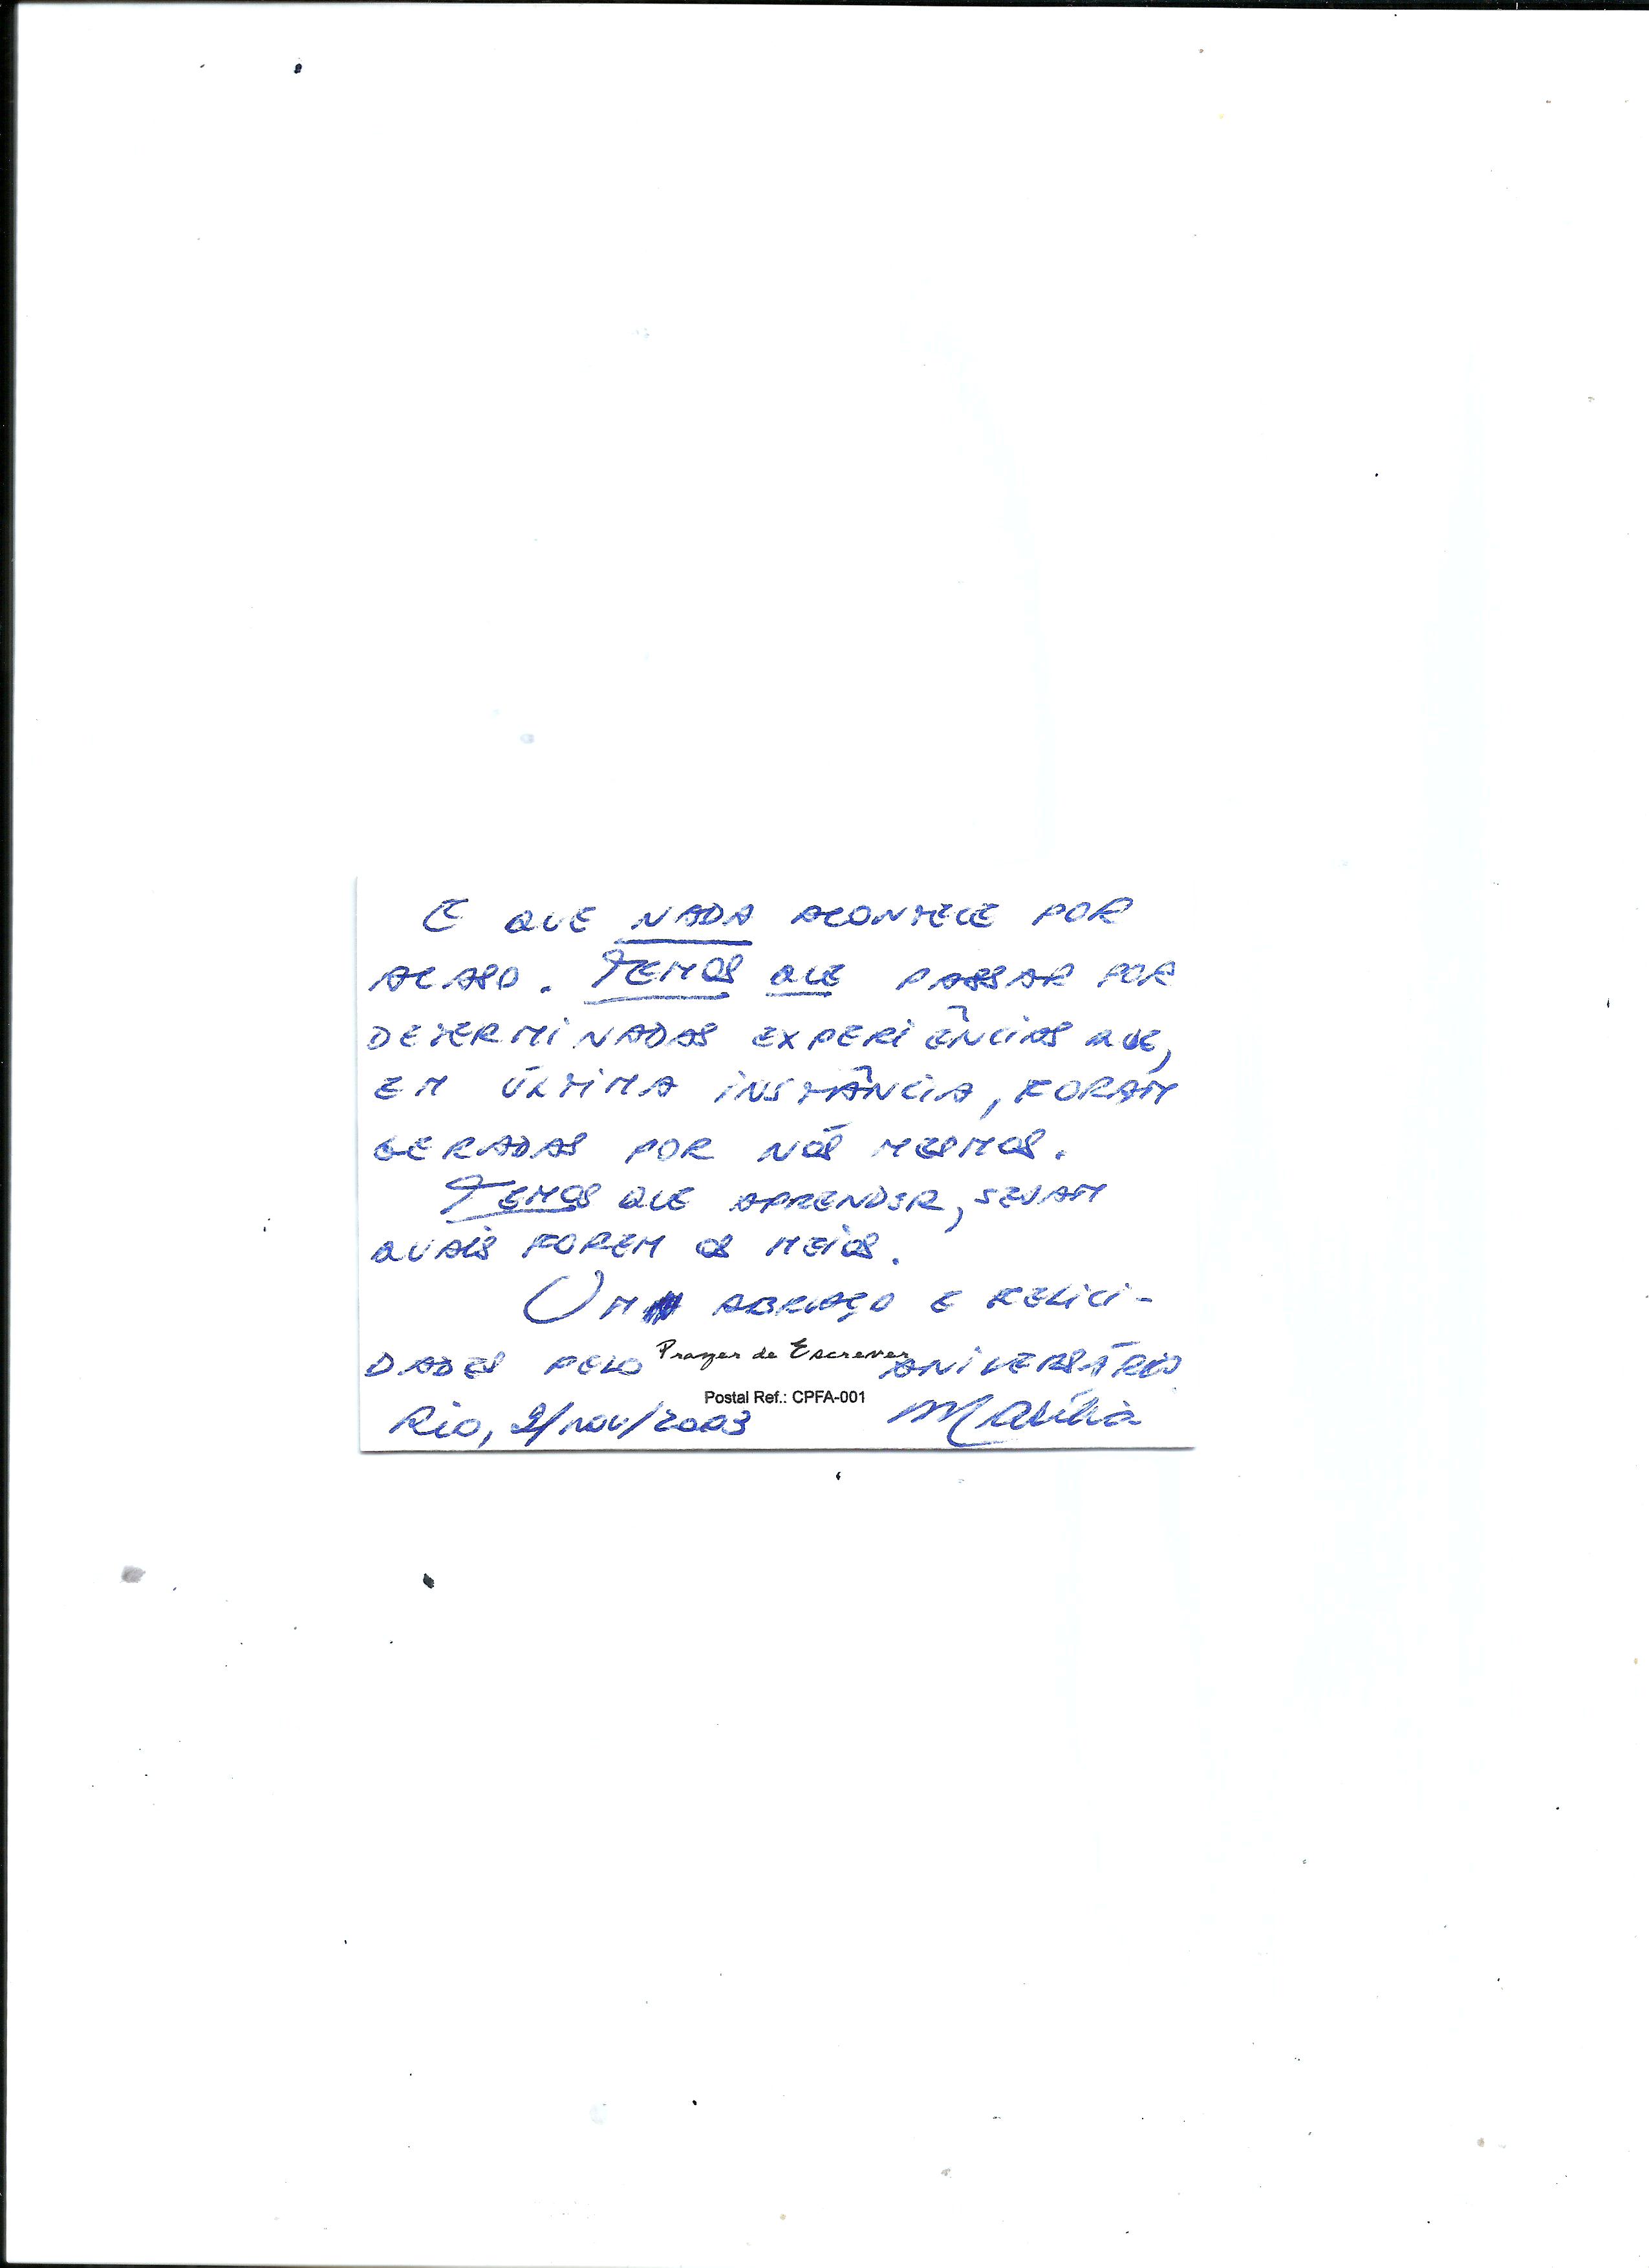 E QUE NADA ACONTECE POR
ACASO. TEMOS QUE PASSAR POR
DETERMINADAS EXPERIÊNCIAS QUE,
EM ÚLTIMA INSTÂNCIA, FORAM
GERADAS POR NÓS MESMOS.
TEMOS QUE APRENDER, SEJAM
QUAIS FOREM OS MEIOS.
UM ABRAÇO E FELICI-
DADES PELO ANIVERSÁRIO
Prazer de Escrever
Postal Ref.: CPFA-001
Rio, 2/NOV/2003 Marília